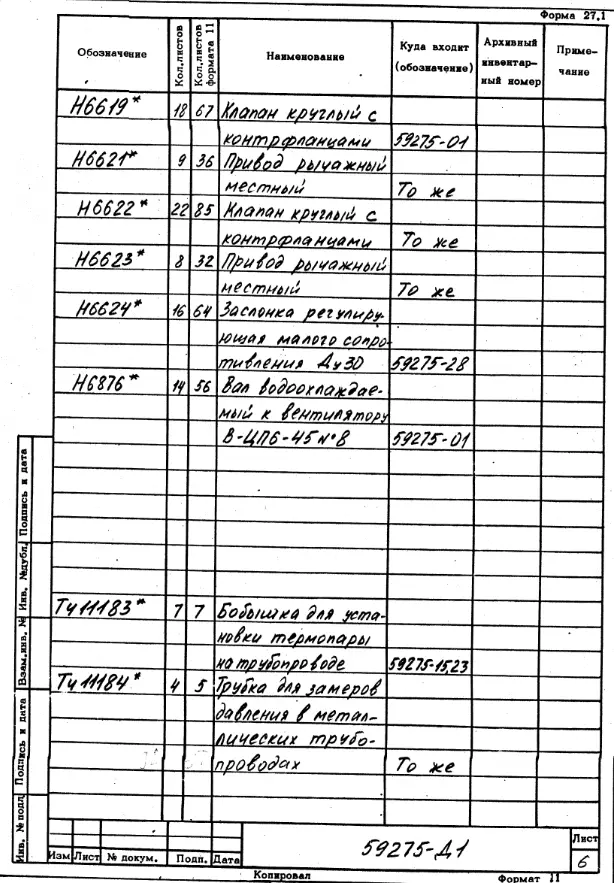 Форма 27.1
Обозначение Кол.листов Кол.листов формата 11 Наименование Куда входит (обозначение) Архивный инвентарный номер Примечание
Н6619* 18 67 Клапан круглый с
контрфланцами 59275-01
Н6621* 9 36 Привод рычажный
местный То же
Н6622* 22 85 Клапан круглый с
контрфланцами То же
Н6623* 8 32 Привод рычажный
местный То же
Н6624* 16 64 Заслонка регулиру-
ющая малого сопро-
тивления Ду30 59275-28
Н6876* 14 56 Вал водоохлаждае-
мый к вентилятору
В-ЦП6-45 №8 59275-01
Ту11183* 7 7 Бобышка для уста-
новки термопары
на трубопроводе 59275-15,23
Ту11184* 4 5 Трубка для замеров
давления в метал-
лических трубо-
проводах То же
Инв. № подл. Подпись и дата Взам.инв. № Инв. №дубл. Подпись и дата
59275-Д1
Лист
6
Изм Лист № докум. Подп. Дата
Копировал Формат 11